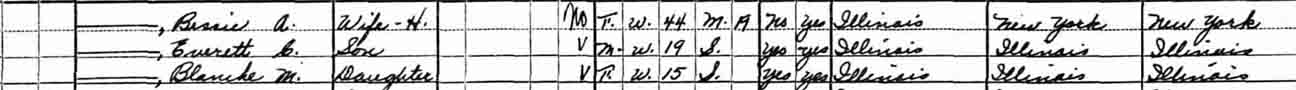 ———, Bessie A. Wife-H. No F. W. 44 M. A No Yes Illinois New York New York
———, Everett C. Son V M. W. 19 S. Yes Yes Illinois Illinois Illinois
———, Blanche M. Daughter V F. W. 15 S. Yes Yes Illinois Illinois Illinois